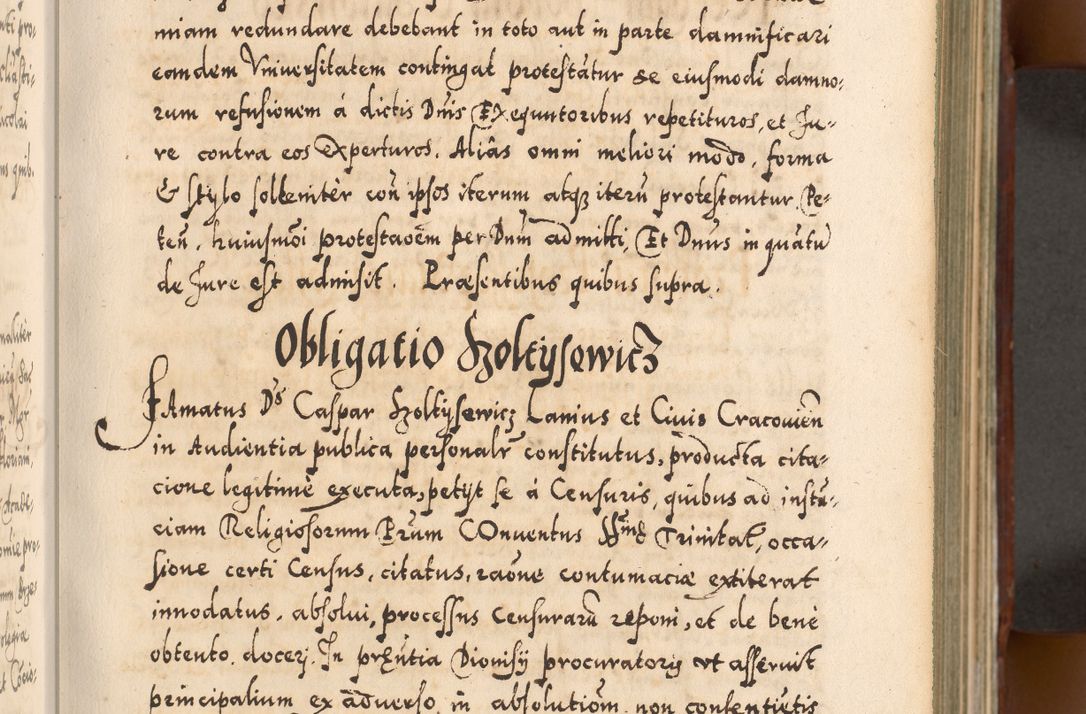 miam redundare debebant in toto aut in parte damnificari
eandem Vniuersitatem contingat protestatur se eiusmodi damno-
rum refusionem á dictis Dnis Exequutoribus repetituros, et Ju-
re contra eos Experturos. Aliâs omni meliori modo, forma
& stylo sollenitèr coñ ipsos iterum atq iterũ protestantur. Pe-
teñ. huiusmõi protestaõem per Dnm admitti, Et Dnus in quãtũ
de Jure est admisit. Præsentibus quibus supra.
Obligatio Szoltysewicz
FAmatus Ds Caspar Szoltysewicz Lanius et Ciuis Cracouieñ
in Audientia publica personalr constitutus, producta cita-
cione legitimè executa, petijt se á Censuris, quibus ad instã-
ciam Religiosorum Prum COnuentus SSmæ Trinitat, occa-
sione certi Census, citatus, raõne contumaciæ extiterat
innodatus, absolui, processus Censurarũ reponi, et de benè
obtento doceri. In pręntia Dionisij procuratoris vt asseruit
principalium ex aduerso in absolutiõm non contentietis